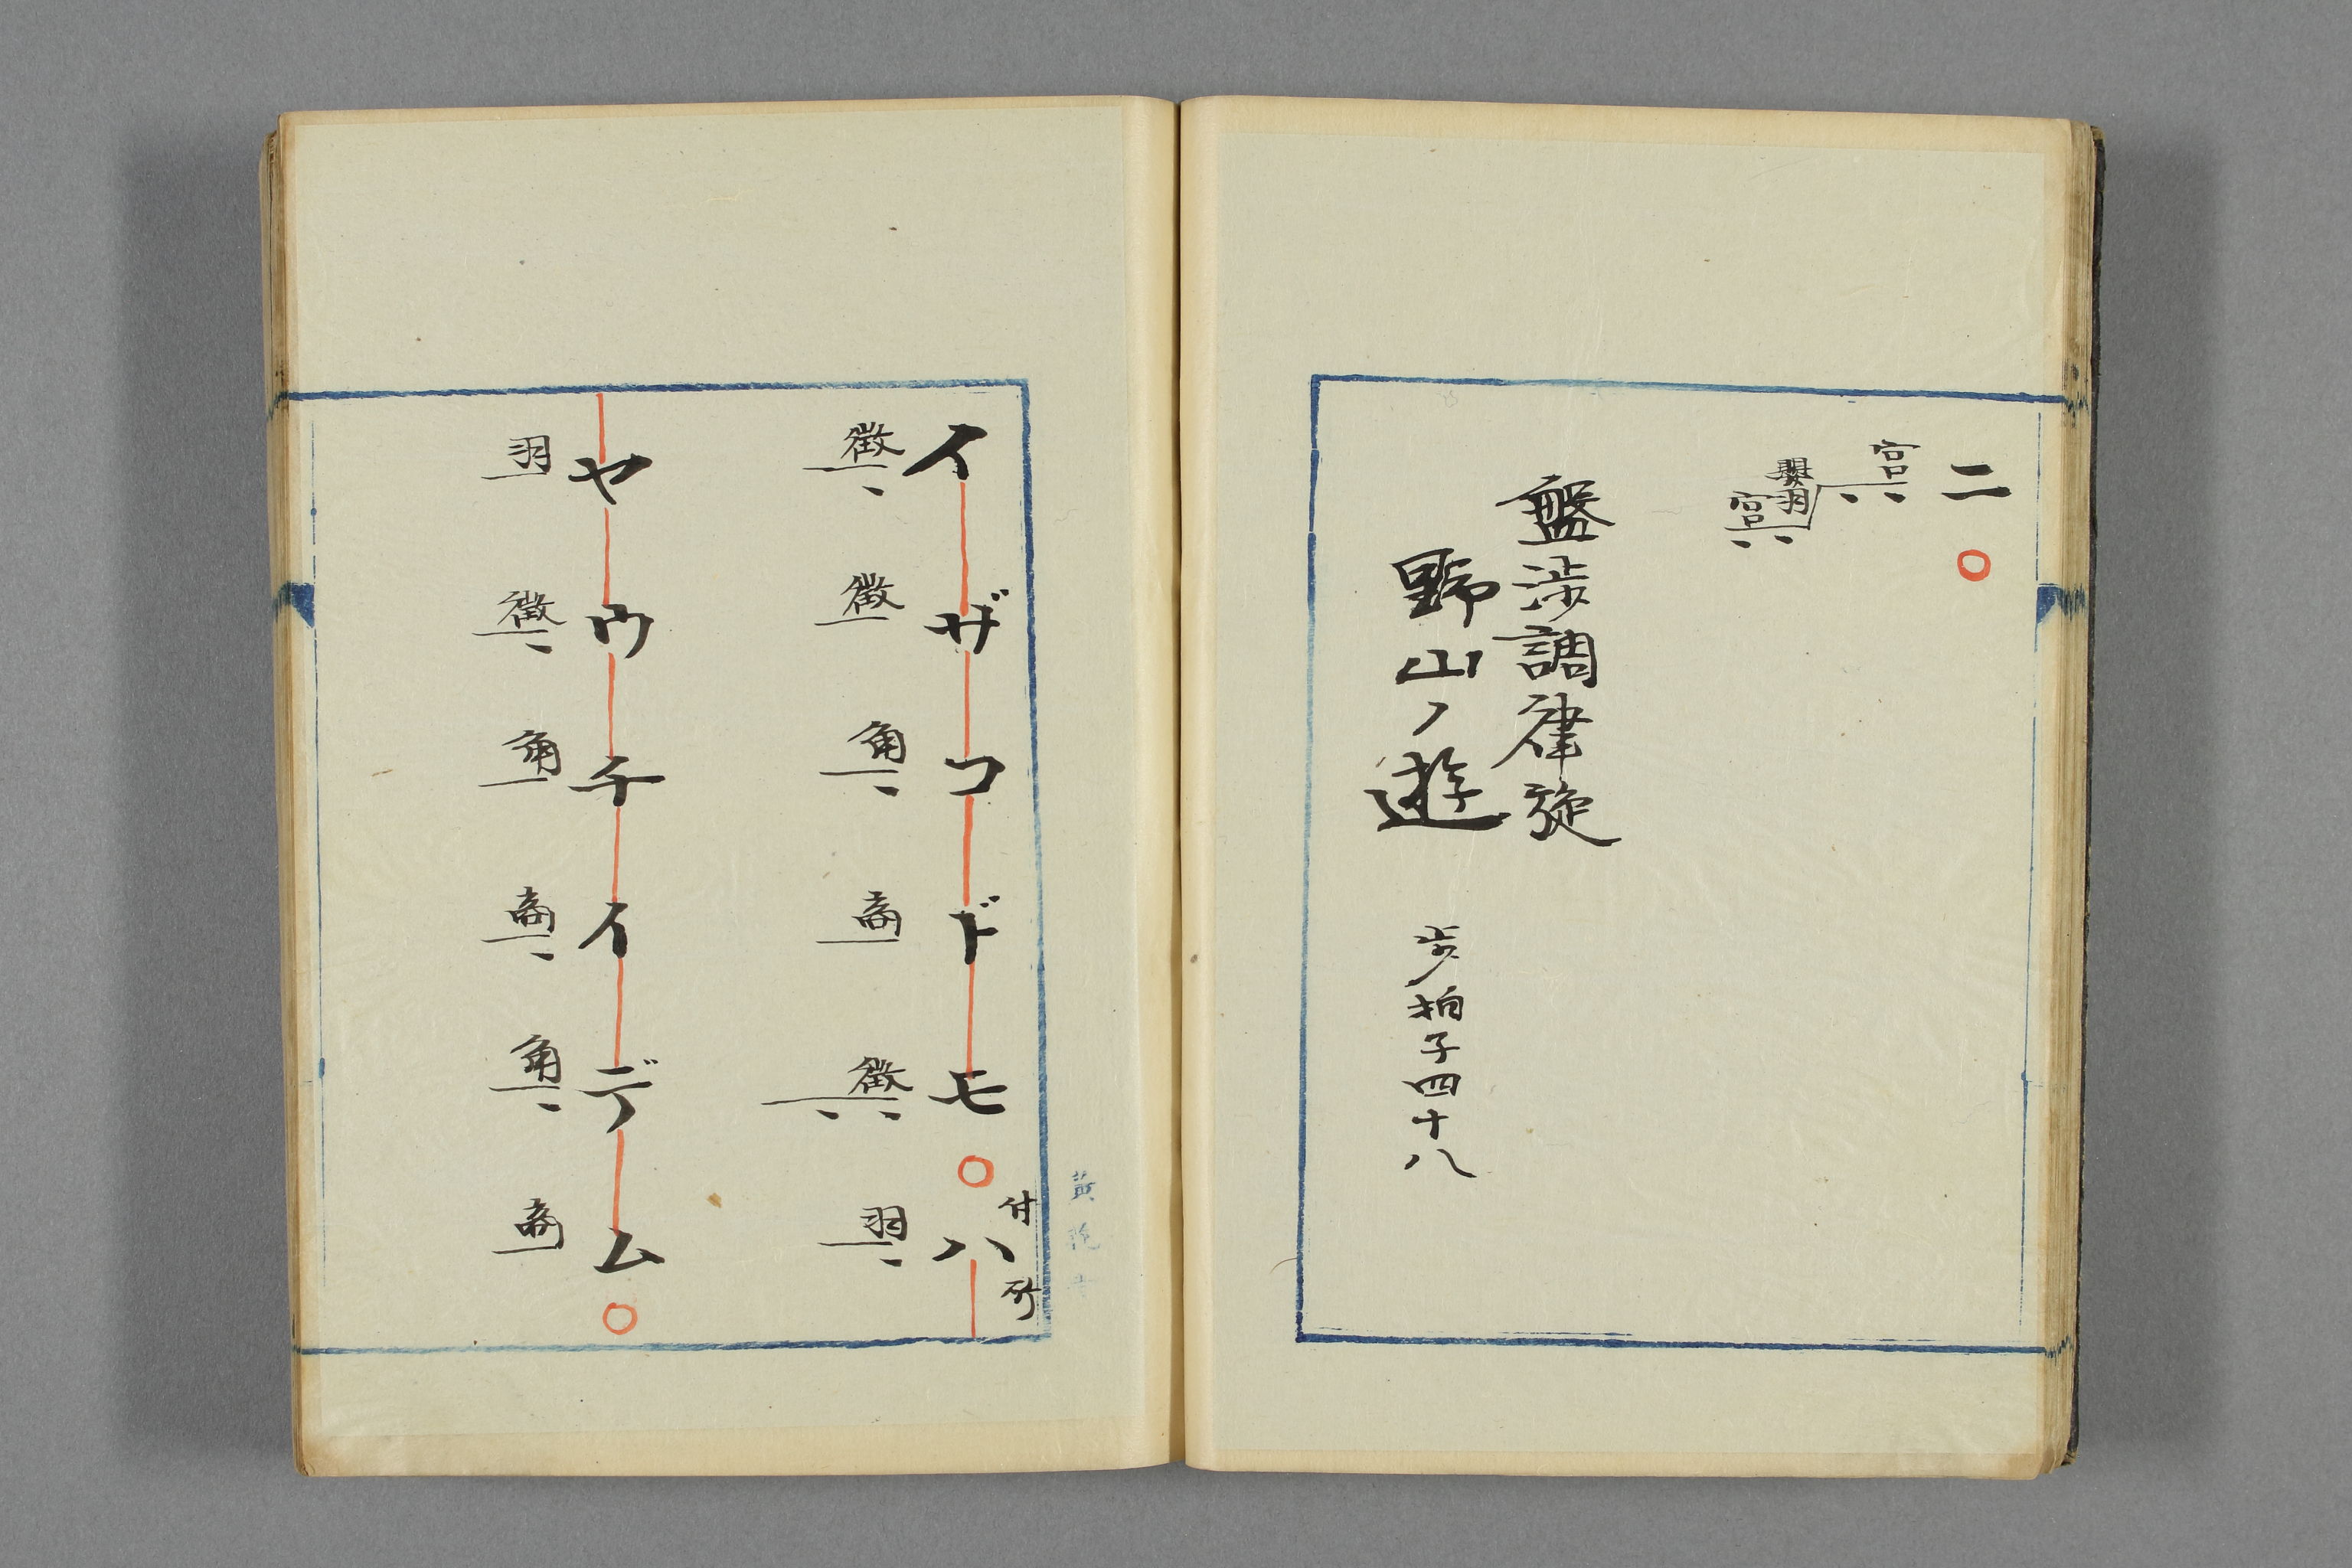 ニ
宮
嬰羽
宮
盤渉調律旋
野山ノ遊
歩拍子四十八
イザコドモハ
付所
徴徴角商徴羽
ヤウチイデム
羽徴角商角商